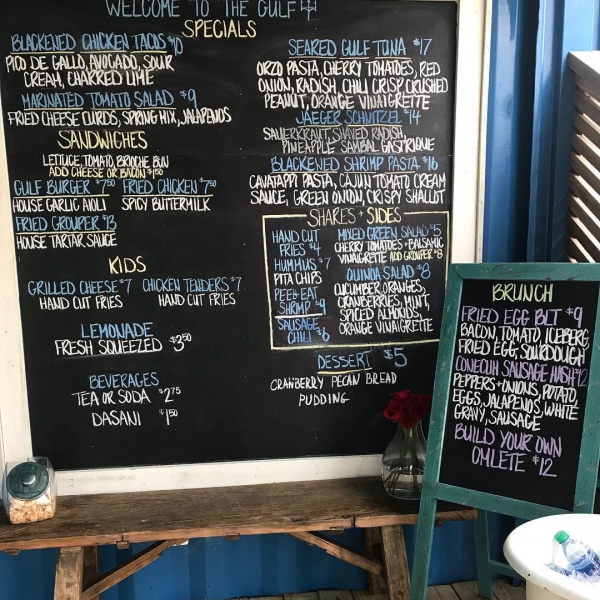 WELCOME TO THE GULF
SPECIALS
BLACKENED CHICKEN TACOS $10
PICO DE GALLO, AVOCADO, SOUR
CREAM, CHARRED LIME
MARINATED TOMATO SALAD $9
FRIED CHEESE CURDS, SPRING MIX, JALAPENOS
SANDWICHES
LETTUCE, TOMATO, BRIOCHE BUN
ADD CHEESE OR BACON $1.50
GULF BURGER $7.50 FRIED CHICKEN $7.50
HOUSE GARLIC AIOLI SPICY BUTTERMILK
FRIED GROUPER $13
HOUSE TARTAR SAUCE
KIDS
GRILLED CHEESE $7 CHICKEN TENDERS $7
HAND CUT FRIES HAND CUT FRIES
LEMONADE
FRESH SQUEEZED $3.50
BEVERAGES
TEA OR SODA $2.75
DASANI $1.50
SEARED GULF TUNA $17
ORZO PASTA, CHERRY TOMATOES, RED
ONION, RADISH, CHILI CRISP, CRUSHED
PEANUT, ORANGE VINAIGRETTE
JAEGER SCHNITZEL $14
SAUERKRAUT, SHAVED RADISH,
PINEAPPLE SAMBAL GASTRIQUE
BLACKENED SHRIMP PASTA $16
CAVATAPPI PASTA, CAJUN TOMATO CREAM
SAUCE, GREEN ONION, CRISPY SHALLOT
SHARES + SIDES
HAND CUT
FRIES $4
HUMMUS $7
PITA CHIPS
PEEL & EAT
SHRIMP $9
SAUSAGE
CHILI $6
MIXED GREEN SALAD $5
CHERRY TOMATOES + BALSAMIC
VINAIGRETTE ADD GROUPER $8
QUINOA SALAD $8
CUCUMBER, ORANGES,
CRANBERRIES, MINT,
SPICED ALMONDS,
ORANGE VINAIGRETTE
DESSERT $5
CRANBERRY PECAN BREAD
PUDDING
BRUNCH
FRIED EGG BLT $9
BACON, TOMATO, ICEBERG,
FRIED EGG, SOURDOUGH
CONECUH SAUSAGE HASH $12
PEPPERS + ONIONS, POTATO,
EGGS, JALAPENOS, WHITE
GRAVY, SAUSAGE
BUILD YOUR OWN
OMLETE $12